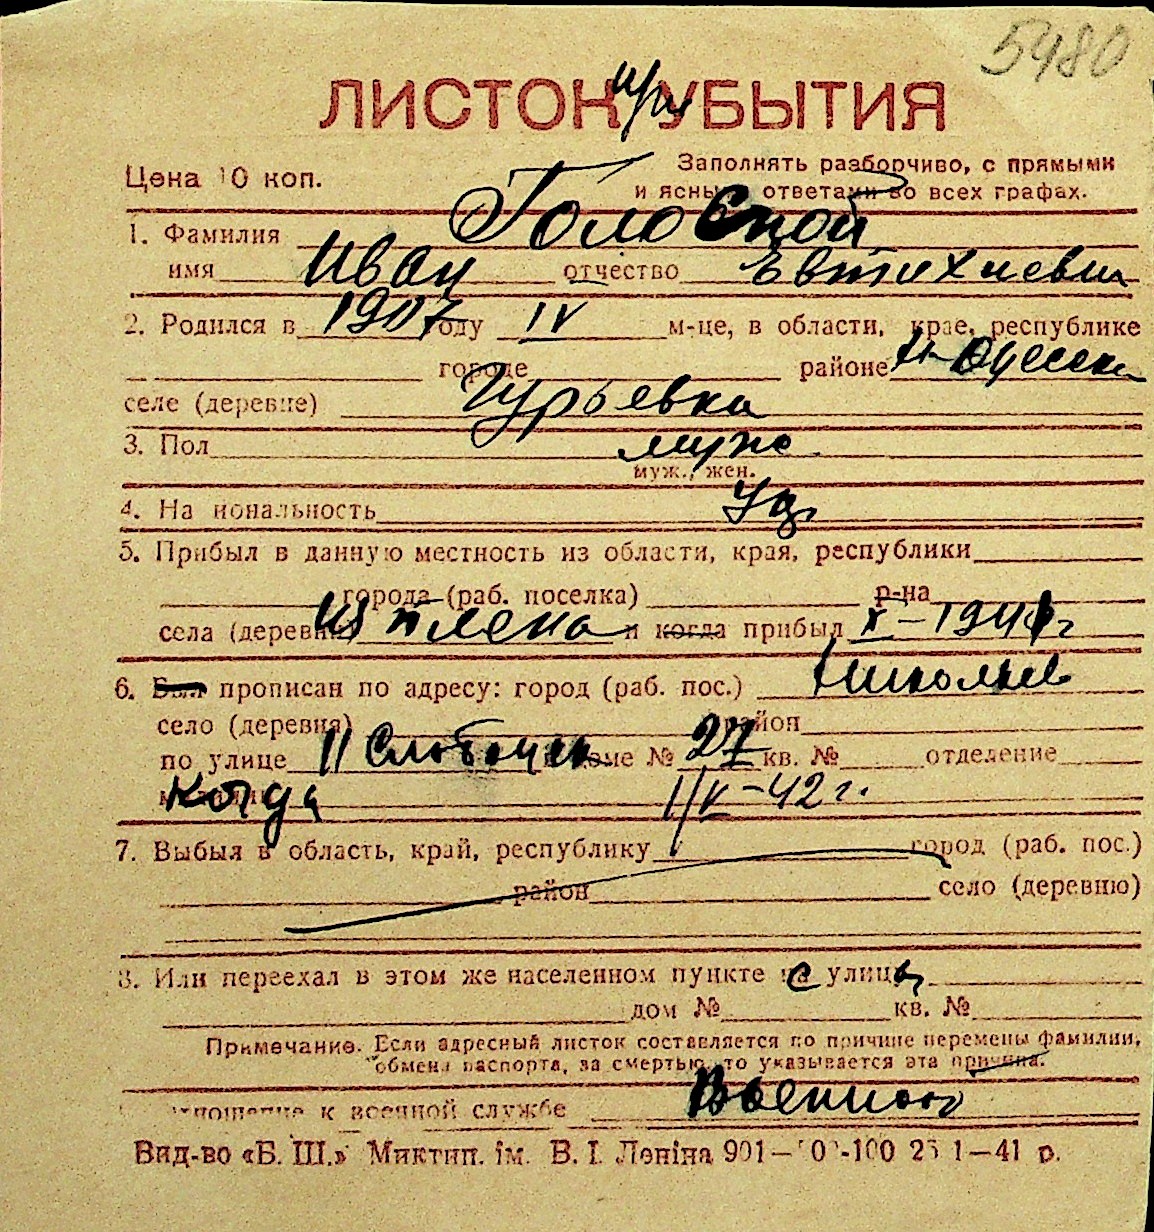 5480
ЛИСТОК при УБЫТИЯ
Цена 10 коп.
Заполнять разборчиво, с прямыми
и ясными ответами во всех графах.
1. Фамилия Головской
имя Иван отчество Евтихиевич
2. Родился в 1907 году IV м-це, в области, крае, республике
городе районе Н-Одесск
селе (деревне) Гурьевка
3. Пол муж
муж., жен.
4. Национальность Ук
5. Прибыл в данную местность из области, края, республики
города (раб. поселка) р-на
села (деревни) из плена и когда прибыл X-1941г
6. Был прописан по адресу: город (раб. пос.) Николаев
село (деревня) район
по улице II Слободск доме № 27 кв. № отделение
Когда II/V-42г.
7. Выбыл в область, край, республику город (раб. пос.)
район село (деревню)
8. Или переехал в этом же населенном пункте с улицы
дом № кв. №
Примечание. Если адресный листок составляется по причине перемены фамилии,
обмена паспорта, за смертью, то указывается эта причина.
отношение к военной службе Военнооб
Вид-во «Б. Ш.» Миктип. ім. В. І. Леніна 901— -100 1—41 р.